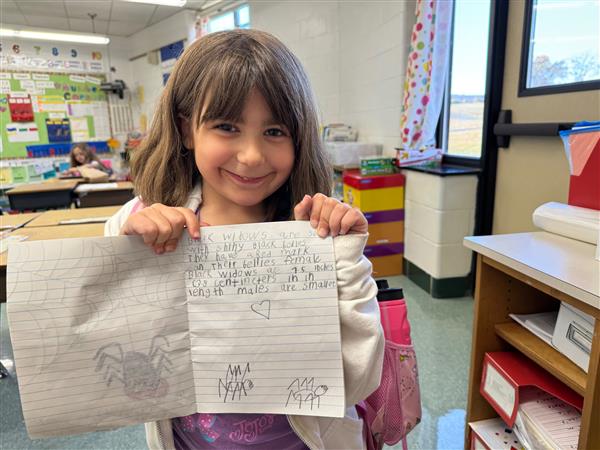 Black widows are
with shiny Black bellies
They have a Red mark
in Their bellies female
Black widows are 1.5 inches
(38 centimeters in in
length males are smaller.
JoJo